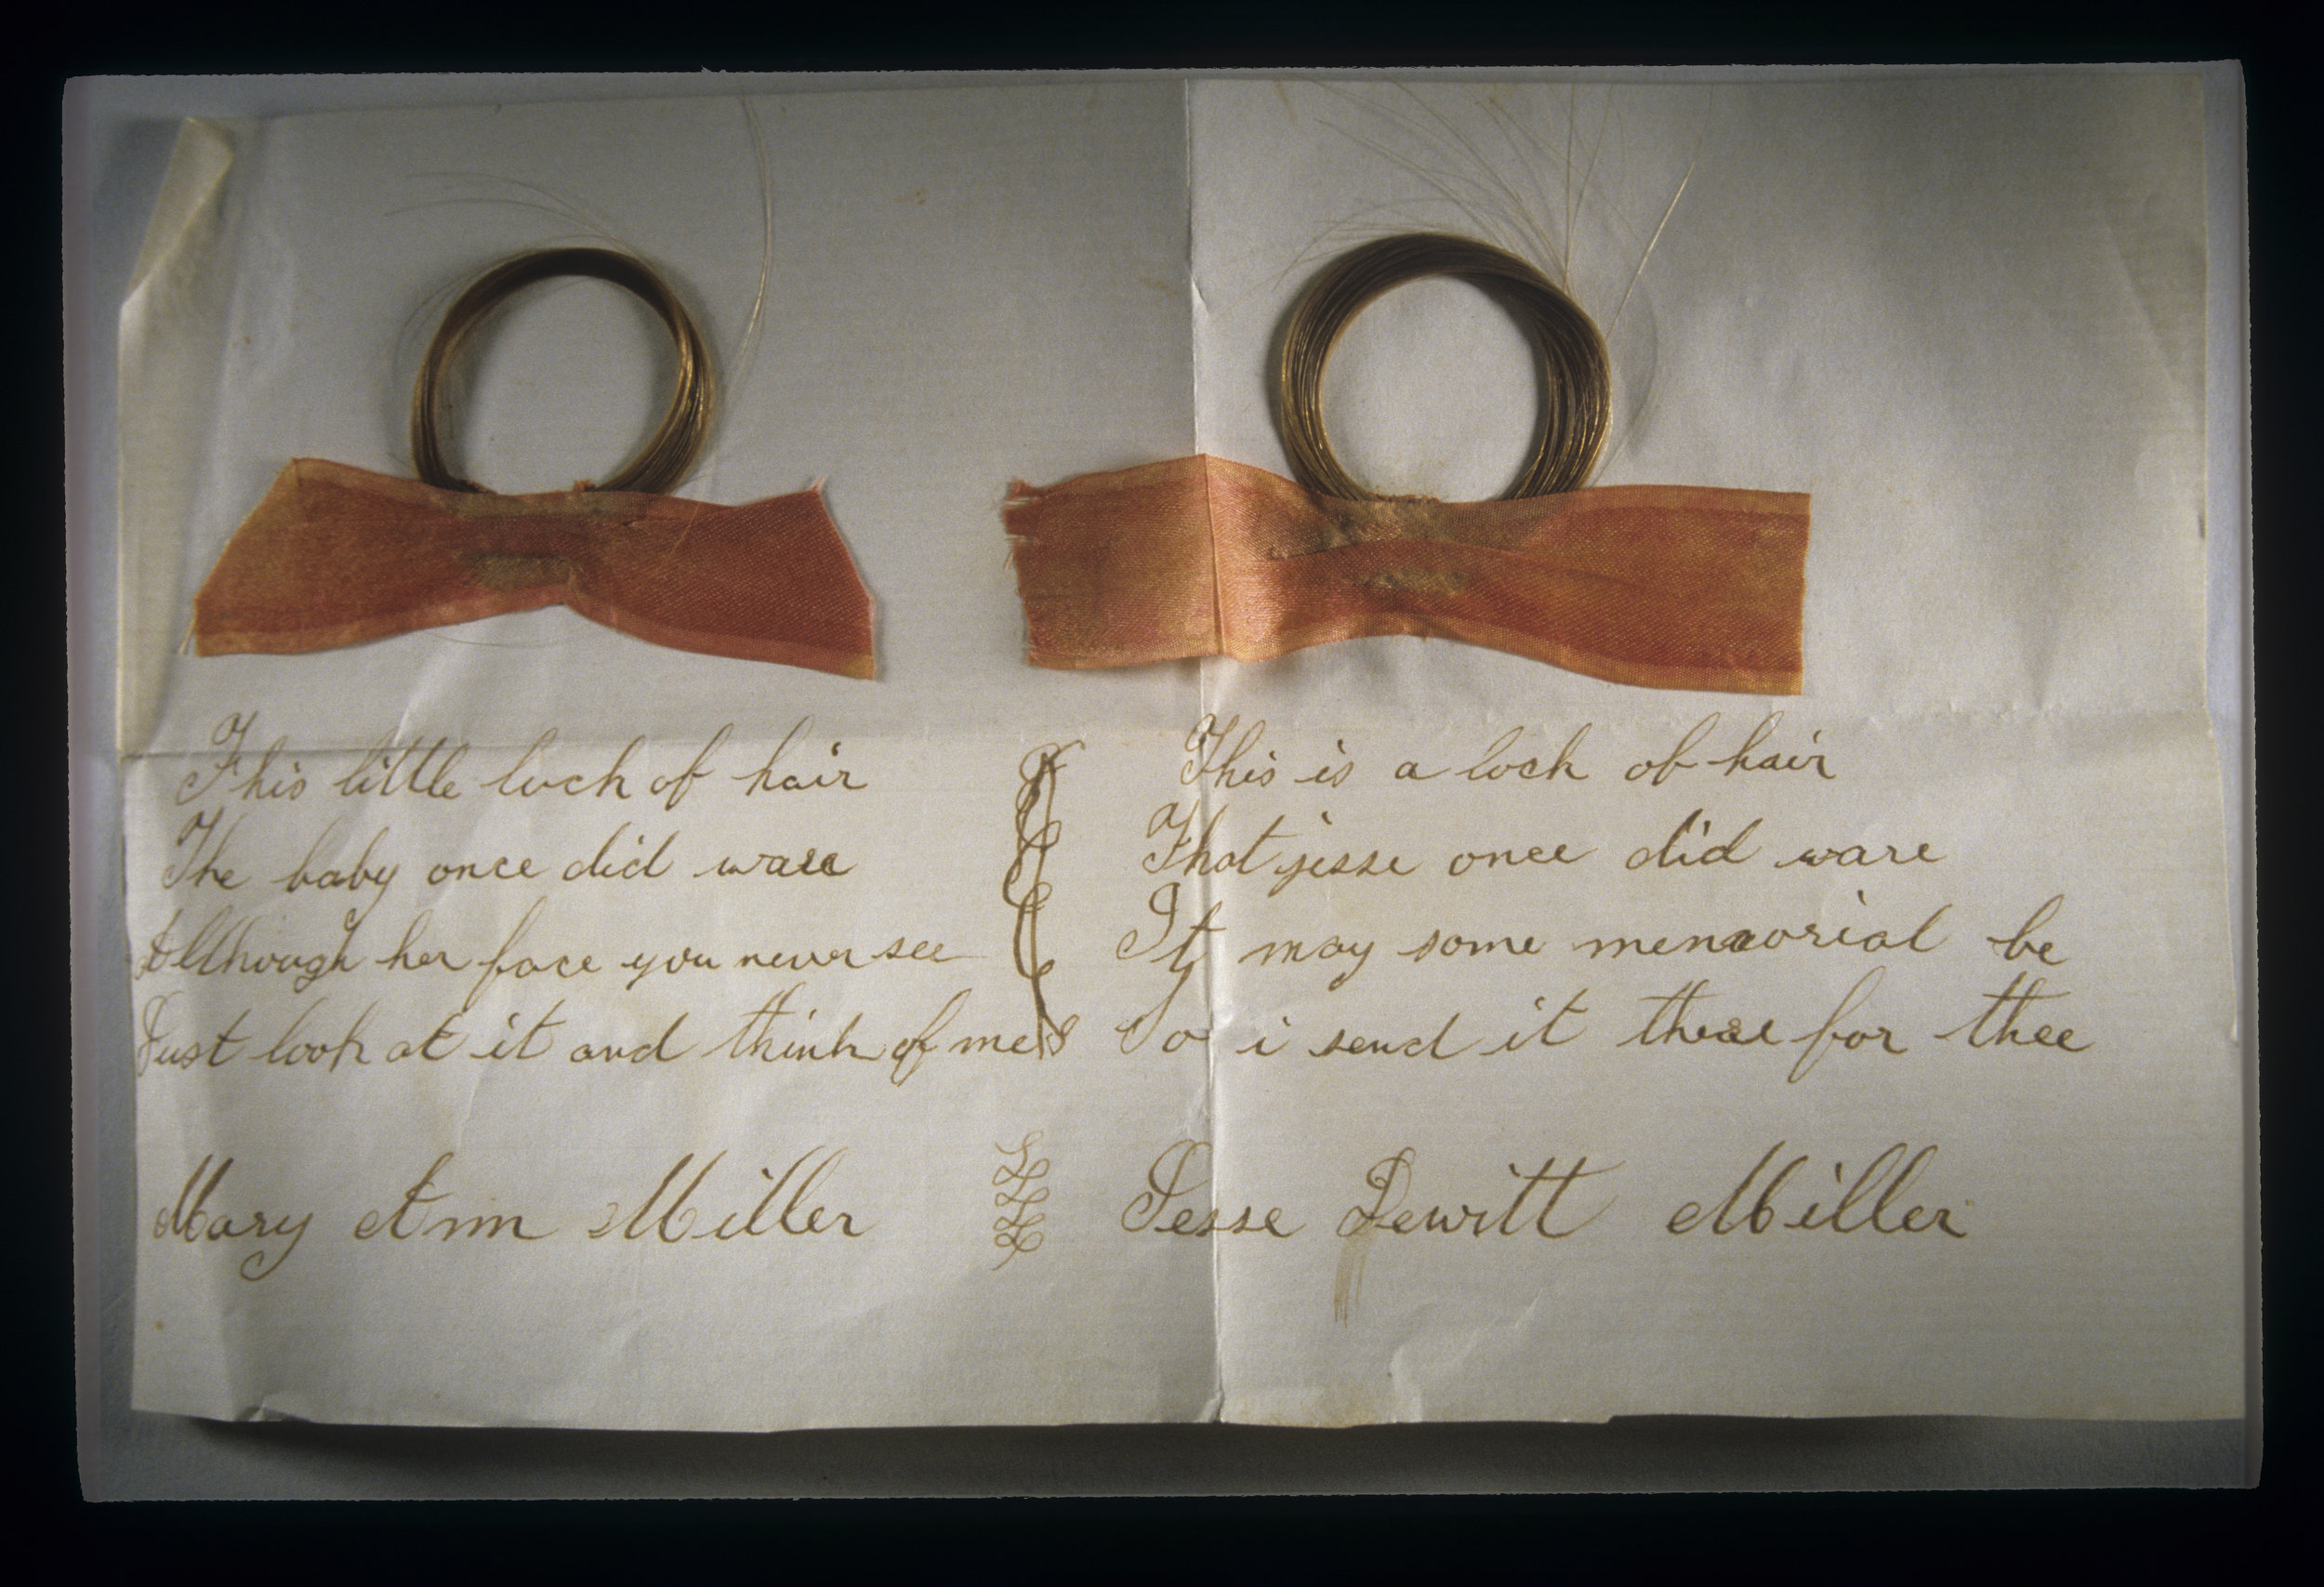 This little lock of hair
The baby once did ware
Although her face you never see
Just look at it and think of me
Mary Ann Miller
This is a lock of hair
That jesse once did ware
It may some memorial be
So i send it there for thee
Jesse Dewitt Miller